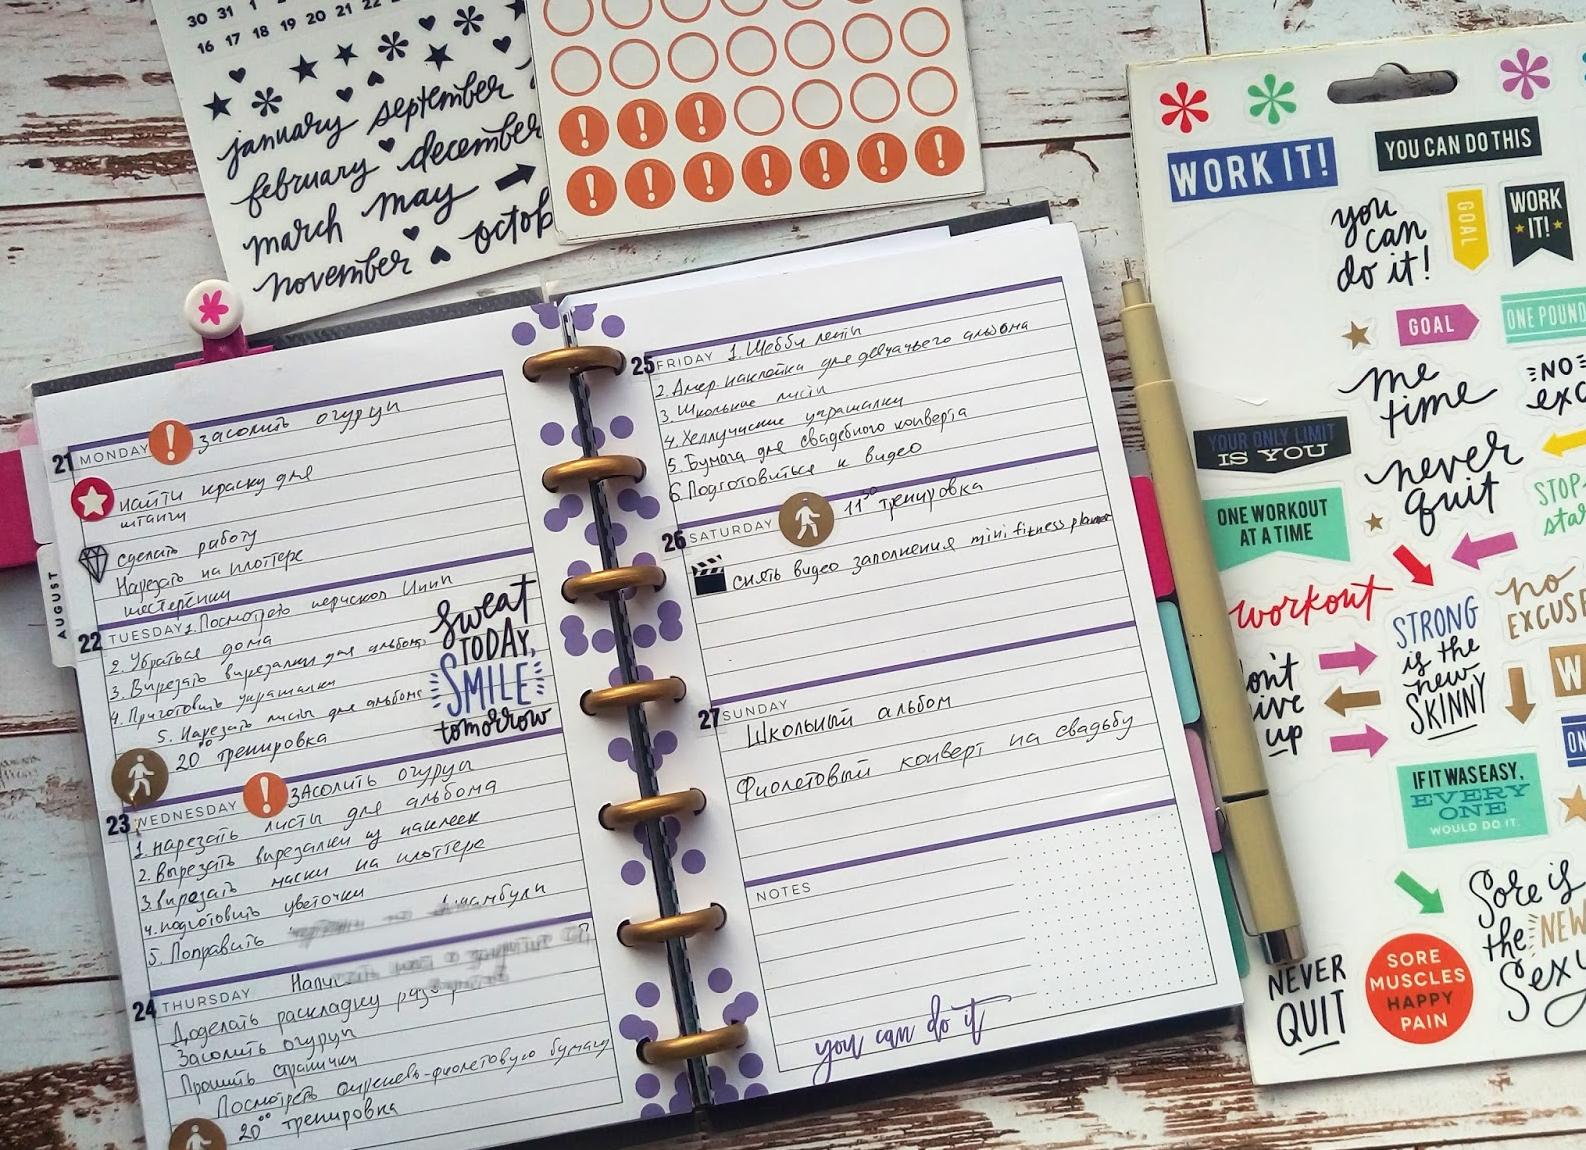 30 31 1
16 17 18 19 20 21 22
january september
february december
march may
november octob
AUGUST
21 MONDAY ! засолить огурцы
найти краску для
штанги
сделать работу
Нарезать на плоттере
шестеренки
22 TUESDAY 1. Посмотреть
2. Убраться дома
3. Вырезать вырезалки для альбома
4. Приготовить украшалки
5. Нарезать листы для альбома
20⁰⁰ тренировка
Sweat
TODAY,
SMILE
tomorrow
23 WEDNESDAY ! ЗАсолить огурцы
1. нарезать листы для альбома
2. вырезать вырезалки из наклеек
3. вырезать маски на плоттере
4. подготовить цветочки
5. Поправить
24 THURSDAY
Доделать раскладку
Засолить огурцы
Прошить странички
Посмотреть сиренево-фиолетовую бумагу
20⁰⁰ тренировка
25 FRIDAY 1. Шебби
2. Амер. наклейка для девчачьего альбома
3. Школьные листы
4. Хеллуинские украшалки
5. Бумага для свадебного конверта
6. Подготовиться к видео
26 SATURDAY 11³⁰ тренировка
снять видео заполнения mini fitness planner
27 SUNDAY
Школьный альбом
Фиолетовый конверт на свадьбу
NOTES
you can do it
WORK IT!
YOU CAN DO THIS
you
can
do it!
GOAL
WORK
IT!
GOAL
ONE POUND
me
time
NO
exc
YOUR ONLY LIMIT
IS YOU
never
quit
ONE WORKOUT
AT A TIME
STOP
sta
workout
STRONG
is the
new
SKINNY
no
EXCUSE
on't
ive
up
W
ON
IF IT WAS EASY,
EVERY
ONE
WOULD DO IT.
Sore is
the NEW
Sexy
NEVER
QUIT
SORE
MUSCLES
HAPPY
PAIN